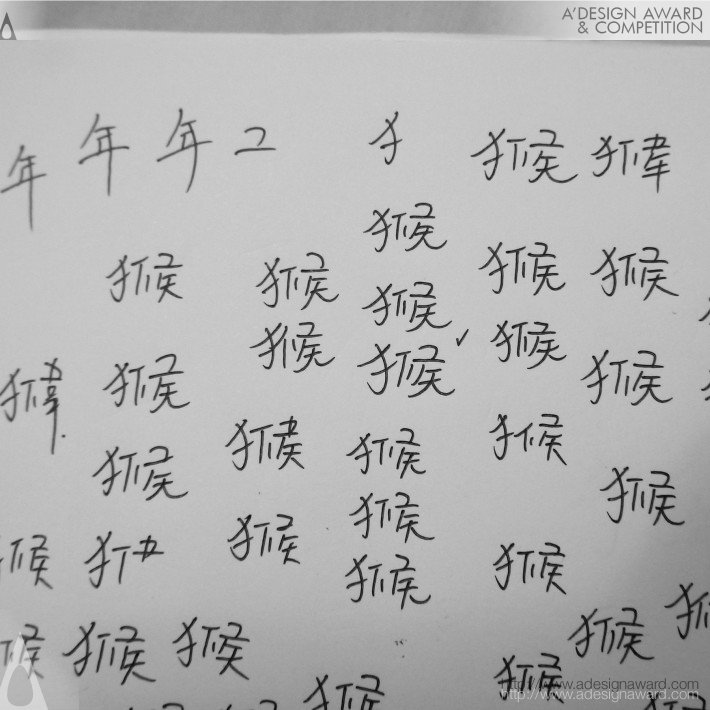 A'DESIGN AWARD
& COMPETITION
年 年 年 犭 猴
猴
猴 猴 猴 猴
猴
猴 猴 ✓ 猴
猴 猴
猴 猴 猴
猴 猴
猴 猴 猴 猴
猴 猴 猴 猴
猴 猴
http://www.adesignaward.com